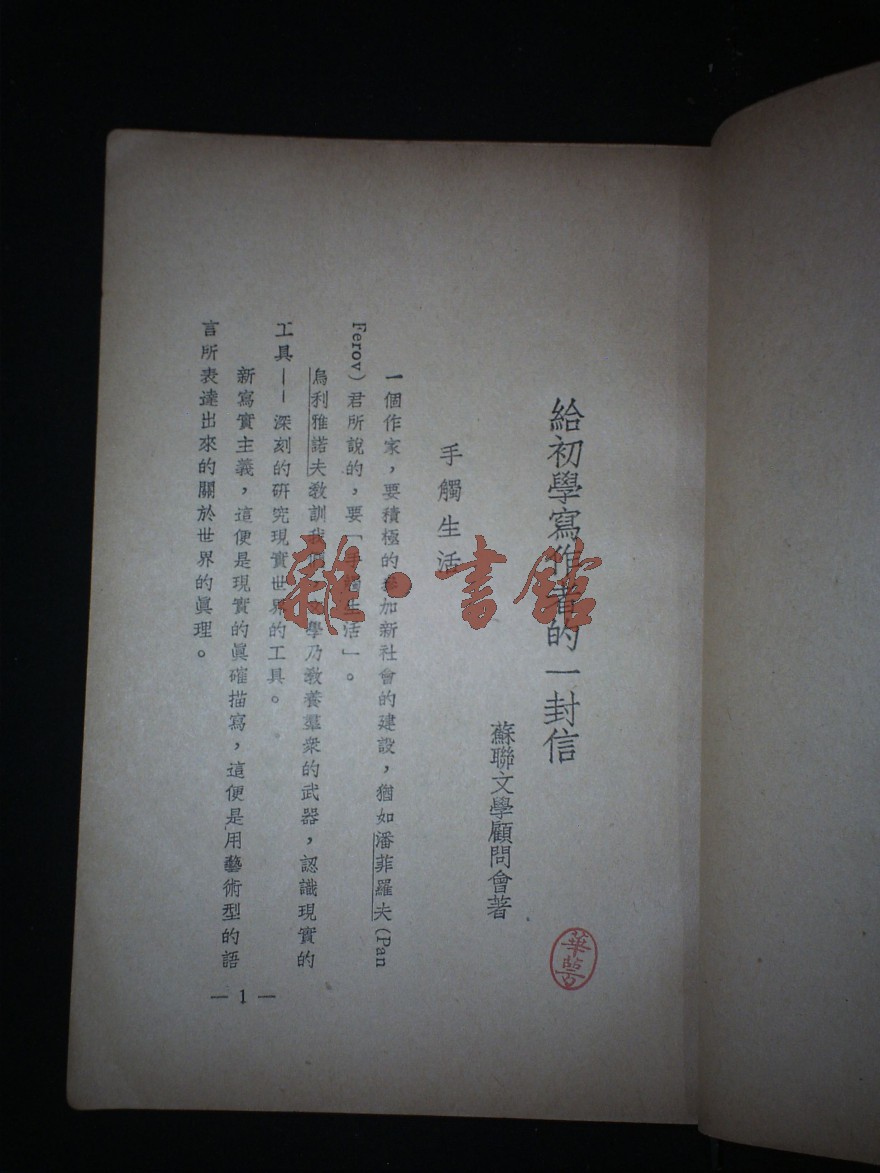 給初學寫作者的一封信
蘇聯文學顧問會著
手觸生活
一個作家，要積極的參加新社會的建設，猶如潘菲羅夫(Pan
Ferov)君所說的，要「手觸生活」。
烏利雅諾夫教訓我們文學乃教養羣衆的武器，認識現實的
工具——深刻的硏究現實世界的工具。
新寫實主義，這便是現實的眞確描寫，這便是用藝術型的語
言所表達出來的關於世界的眞理。
— 1 —
雜·書館
華